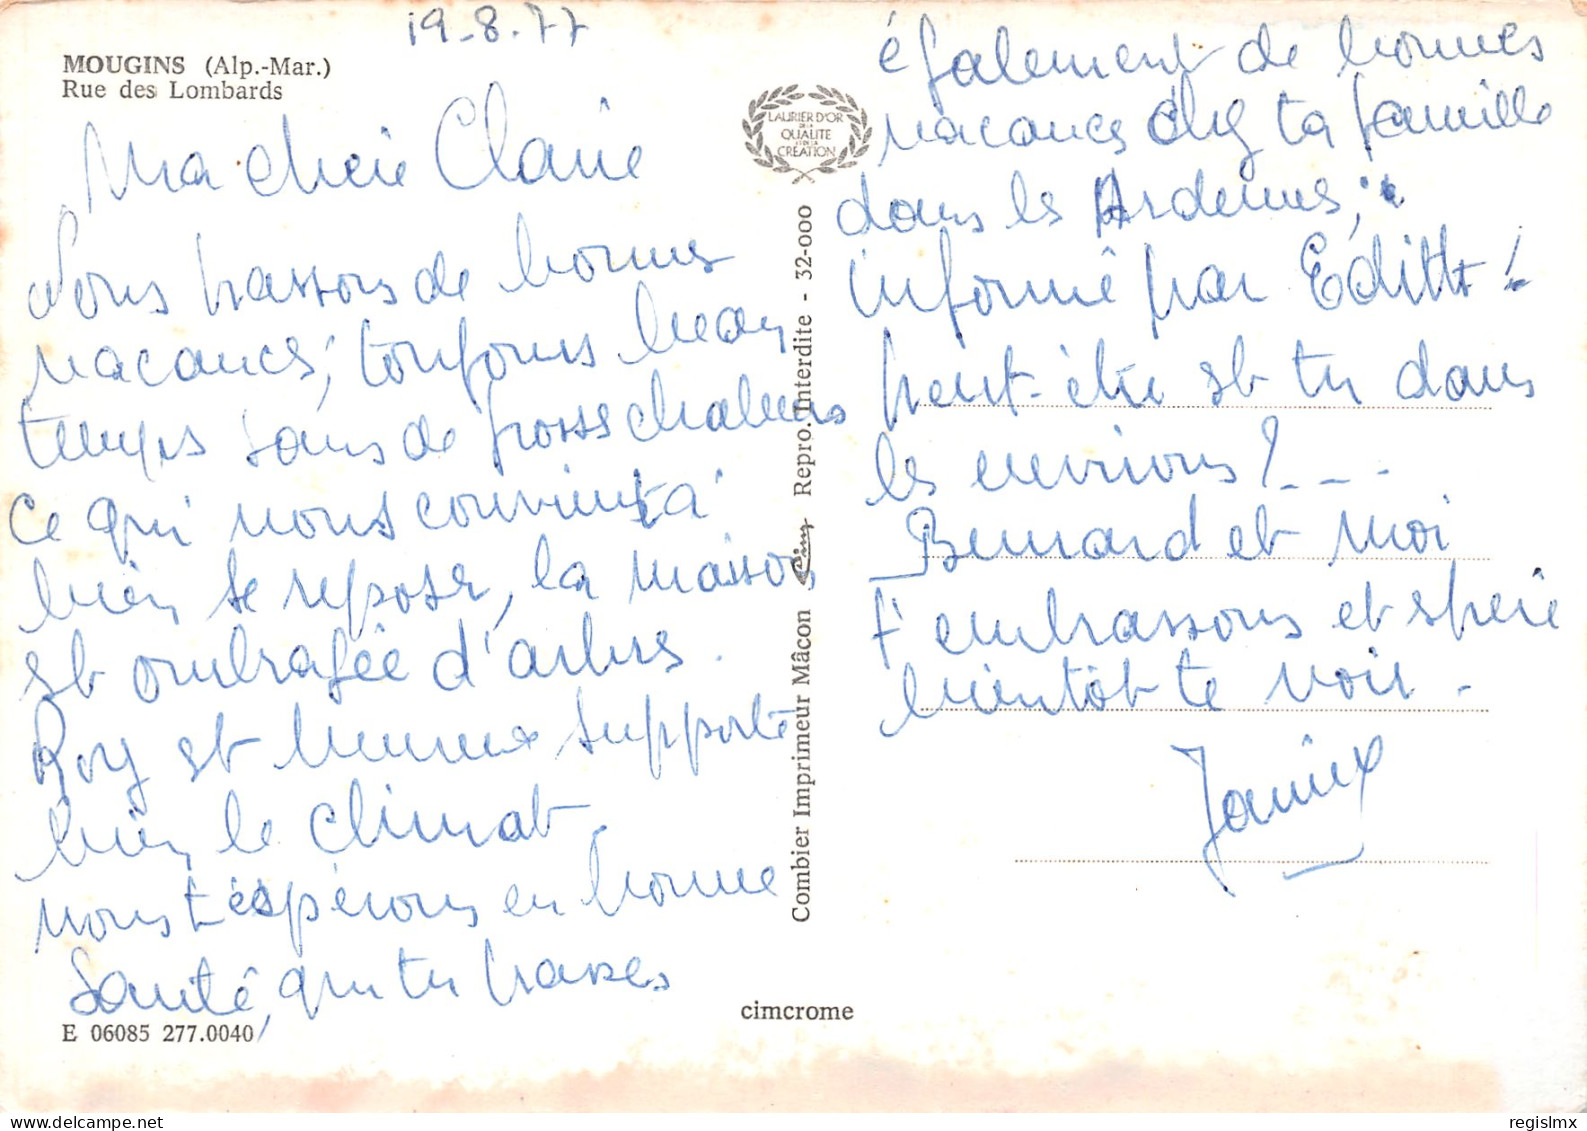 19.8.77
MOUGINS (Alp.-Mar.)
Rue des Lombards
Ma chère Claire
Nous passons de bonnes
vacances, toujours beau
temps sans de grosses chaleurs
ce qui nous convient à
bien se reposer, la maison
est ombragée d'arbres.
Rory est heureux supporte
bien le climat.
nous t'espérons en bonne
santé, que tu passes
E 06085 277.0040
LAURIER D'OR
DE LA
QUALITÉ
ET DE LA
CRÉATION
Combier Imprimeur Mâcon Cim Repro. Interdite - 32-000
cimcrome
également de bonnes
vacances chez ta famille
dans les Ardennes,
informé par Edith !
peut-être est tu dans
les environs ? - - -
Bernard et moi
t'embrassons et espère
bientôt te voir.
regislmx